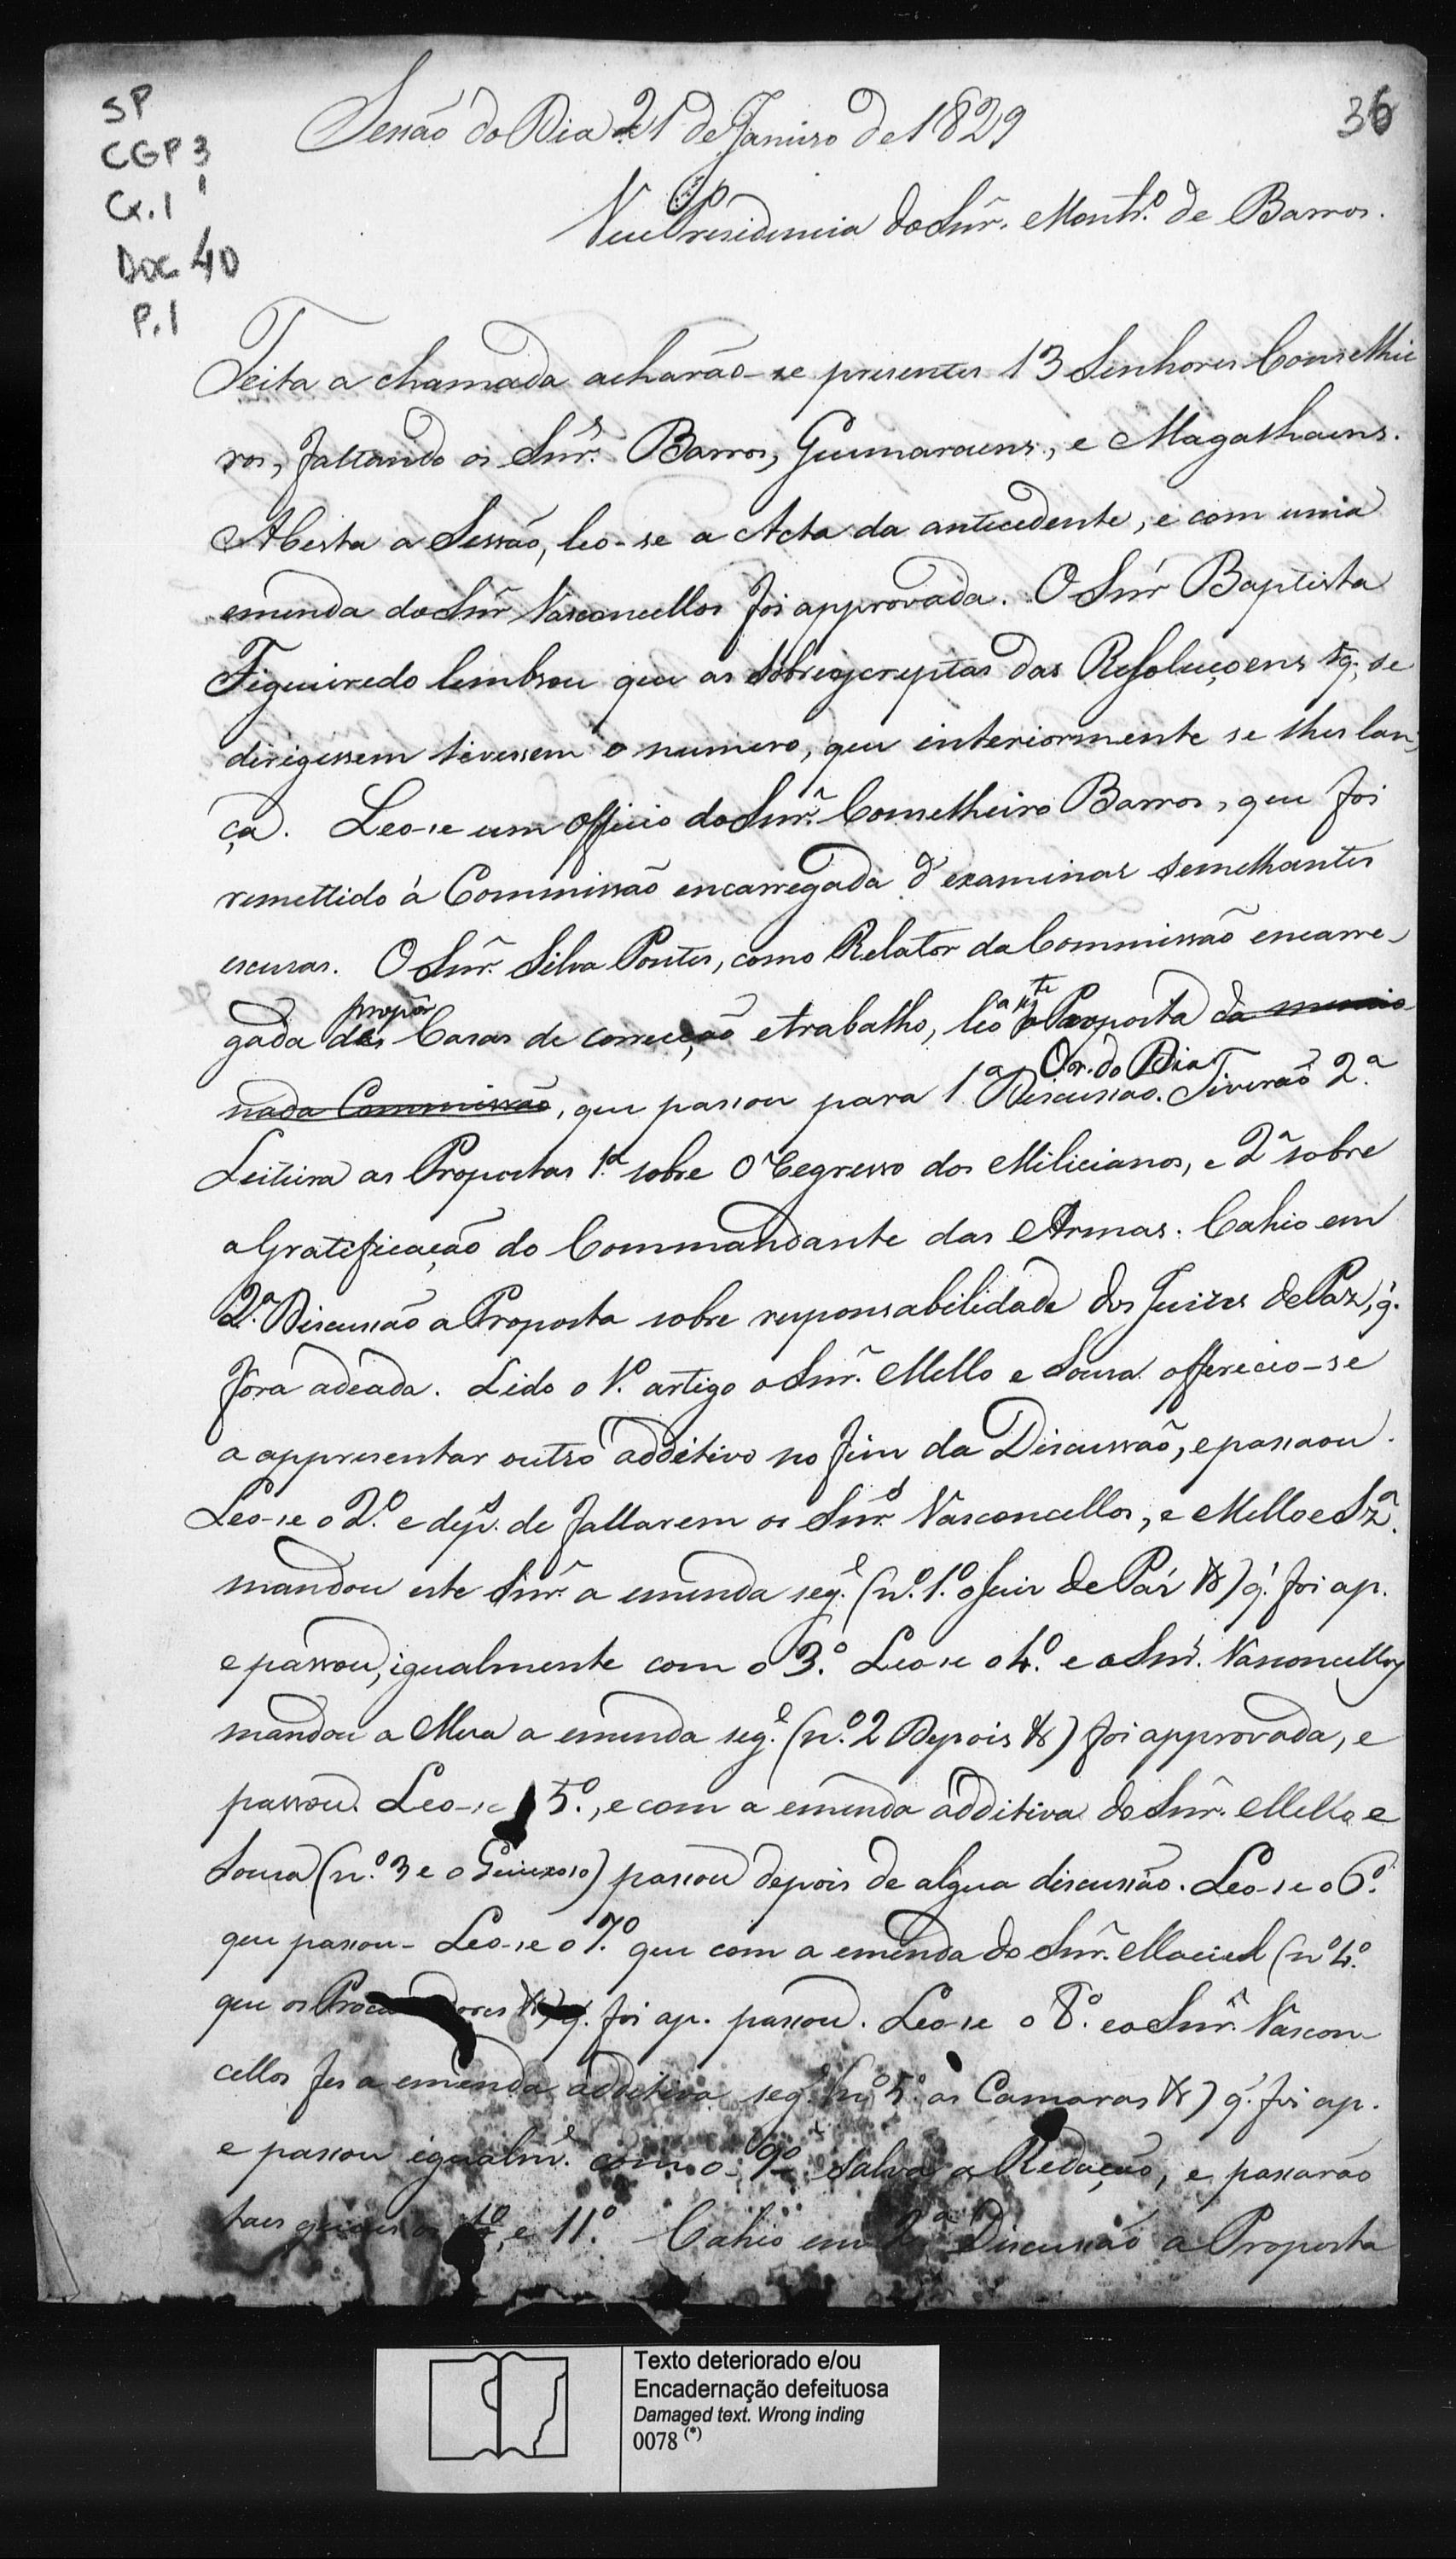 SP
CGP3
Cx.1
Doc 40
P.1
36
Sessão do Dia 21 de Janeiro de 1829
Vice Presidencia do Snr. Montro. de Barros.
Feita a chamada acharão-se presentes 13 Senhores Conselhei
ros, faltando os Snrs. Barros, Guimaraens, e Magalhaens.
Aberta a Sessão, leo-se a Acta da antecedente, e com uma
emenda do Snr. Vasconcellos foi approvada. O Snr Baptista
Figueiredo lembrou que as sobreescriptas das Resoluçoens q. se
dirigissem tivessem o numero, que interiormente se lhes lan
ça. Leo-se um Officio do Snr. Conselheiro Barros, que foi
remettido á Commissão encarregada d'examinar semelhantes
escusas. O Snr. Silva Pontes, como Relator da Commissão encarre-
gada de propôr Casas de correcção e trabalho, leo a Proposta da
nada Commissão, que passou para 1a. Discussão. Or. do Dia Tiverão 2.a
Leitura as Propostas 1.a sobre o regresso dos Milicianos, e 2a sobre
a Gratificação do Commandante das Armas. Cahio em
2a. Discussão a Proposta sobre responsabilidade dos Juizes de Paz, q.
fôra adeada. Lido o 1o. artigo o Snr. Mello e Sousa offereceo-se
a appresentar outro additivo no fim da Discussão, e passou.
Leo-se o 2.o e deps. de fallarem os Snrs. Vasconcellos, e Mello e Sza.
mandou este Snr. a emenda sege. (no. 1.o o Juiz de Paz &) q. foi ap.
e passou, igualmente com o 3.o Leo-se o 4.o e o Snr. Vasconcellos
mandou a Mesa a emenda sege. (no. 2 Depois &) foi approvada, e
passou. Leo-se 5o., e com a emenda additiva do Snr. Mello e
Sousa (n.o 3 e o Queixoso) passou depois de algua discussão. Leo-se o 6o.
que passou - Leo-se o 7o. que com a emenda do Snr. Maciel (no 4.o
que os Procuradores &) q. foi ap. passou. Leo-se o 8.o e o Snr. Vascon-
cellos fes a emenda additiva sege. (no 5.o as Camaras &) q. foi ap.
e passou igualme. com o 9o salva a Redacção, e passarão
taes quaes os 10 e 11o. Cahio em 2a Discussão a Proposta
Texto deteriorado e/ou
Encadernação defeituosa
Damaged text. Wrong inding
0078 (*)